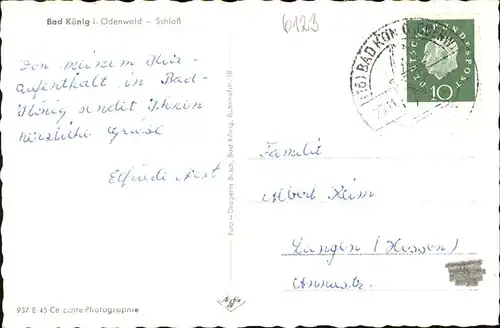 Bad König i. Odenwald – Schloß
6123
(16) BAD KÖNIG
DEUTSCHE BUNDESPOST
10
Von meinem Kur-
aufenthalt in Bad-
König sendet Ihnen
herzliche Grüße
Elfriede
Foto - Drogerie Busch, Bad König, Bahnhofstr. 18
Familie
Albert Keim
Langen (Hessen)
Annastr.
937 E 45 Ce Echte Photographie